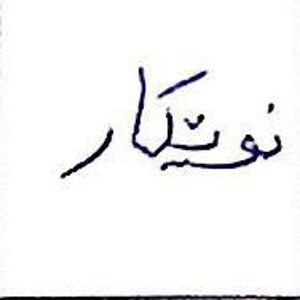 نویتکار